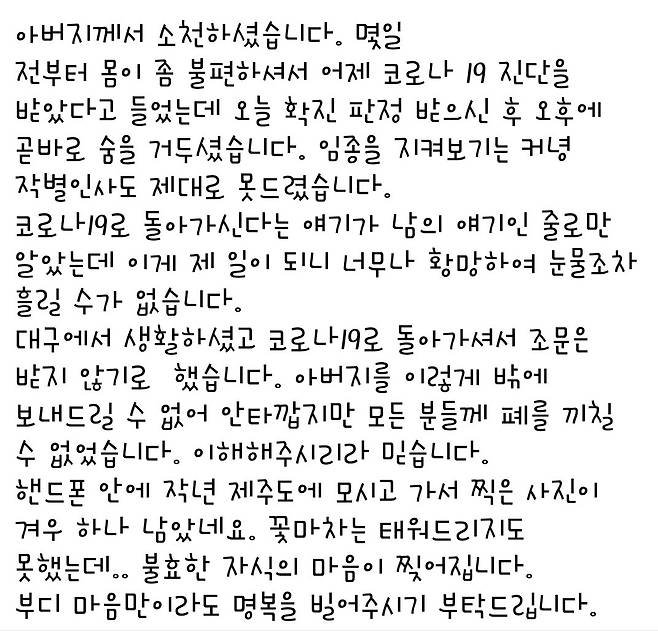 아버지께서 소천하셨습니다. 몇일
전부터 몸이 좀 불편하셔서 어제 코로나 19 진단을
받았다고 들었는데 오늘 확진 판정 받으신 후 오후에
곧바로 숨을 거두셨습니다. 임종을 지켜보기는 커녕
작별인사도 제대로 못드렸습니다.
코로나19로 돌아가신다는 얘기가 남의 얘기인 줄로만
알았는데 이게 제 일이 되니 너무나 황망하여 눈물조차
흘릴 수가 없습니다.
대구에서 생활하셨고 코로나19로 돌아가셔서 조문은
받지 않기로 했습니다. 아버지를 이렇게 밖에
보내드릴 수 없어 안타깝지만 모든 분들께 폐를 끼칠
수 없었습니다. 이해해주시리라 믿습니다.
핸드폰 안에 작년 제주도에 모시고 가서 찍은 사진이
겨우 하나 남았네요. 꽃마차는 태워드리지도
못했는데.. 불효한 자식의 마음이 찢어집니다.
부디 마음만이라도 명복을 빌어주시기 부탁드립니다.